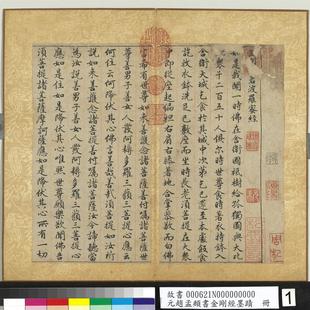 若波羅蜜經
如是我聞一時佛在舍衛國祇樹給孤獨園與大比
衆千二百五十人俱尒時世尊食時著衣持鉢入
舍衛大城乞食於其城中次第乞已還至本處飯食
訖收衣鉢洗足已敷座而坐時長老須菩提在大衆
中即從座起偏袒右肩右膝著地合掌恭敬而白佛
言希有世尊如來善護念諸菩薩善付囑諸菩薩世
尊善男子善女人發阿耨多羅三藐三菩提心應云
何住云何降伏其心佛言善哉善哉須菩提如汝所
說如來善護念諸菩薩善付囑諸菩薩汝今諦聽當
為汝說善男子善女人發阿耨多羅三藐三菩提心
應如是住如是降伏其心唯然世尊願樂欲聞佛告
須菩提諸菩薩摩訶薩應如是降伏其心所有一切
故書 000621N000000000
元趙孟頫書金剛經墨蹟 冊
1